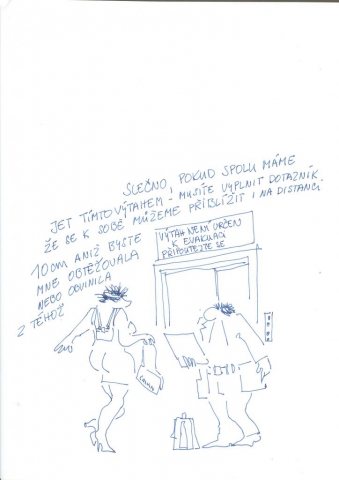 SLEČNO, POKUD SPOLU MÁME
JET TÍMTO VÝTAHEM - MUSÍTE VYPLNIT DOTAZNÍK.
ŽE SE K SOBĚ MŮŽEME PŘIBLÍŽIT I NA DISTANCI
10 cm ANIŽ BYSTE
MNE OBTĚŽOVALA
NEBO OBVINILA
Z TÉHOŽ
VÝTAH NENÍ URČEN
K EVAKUACI
PŘIPOUTEJTE SE